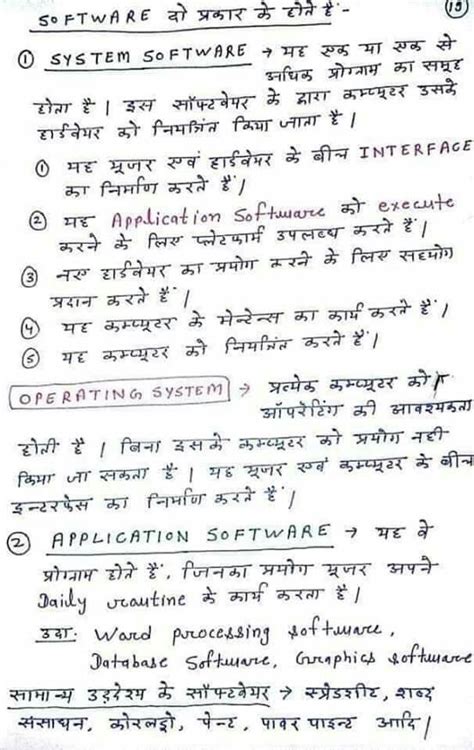 SOFTWARE दो प्रकार के होते है :- (15)
① SYSTEM SOFTWARE → यह एक या एक से
अधिक प्रोग्राम का समूह
होता है । इस सॉफ्टवेयर के द्वारा कम्प्यूटर उसके
हार्डवेयर को नियंत्रित किया जाता है ।
① यह यूजर एवं हार्डवेयर के बीच INTERFACE
का निर्माण करते हैं ।
② यह Application Software को execute
करने के लिए प्लेटफार्म उपलब्ध करते हैं ।
③ नए हार्डवेयर का प्रयोग करने के लिए सहयोग
प्रदान करते हैं ।
④ यह कम्प्यूटर के मेन्टेन्स का कार्य करते हैं ।
⑤ यह कम्प्यूटर को नियंत्रित करते हैं ।
OPERATING SYSTEM → प्रत्येक कम्प्यूटर को
ऑपरेटिंग की आवश्यकता
होती है । बिना इसके कम्प्यूटर को प्रयोग नही
किया जा सकता है । यह यूजर एवं कम्प्यूटर के बीच
इन्टरफेस का निर्माण करते हैं ।
② APPLICATION SOFTWARE → यह वे
प्रोग्राम होते हैं, जिनका प्रयोग यूजर अपने
Daily routine के कार्य करता है ।
उदा: Word processing software,
Database Software, Graphics software
सामान्य उद्देश्य के सॉफ्टवेयर → स्प्रेडशीट, शब्द
संसाधन, कोरलड्रो, पेन्ट, पावर पाइन्ट आदि ।